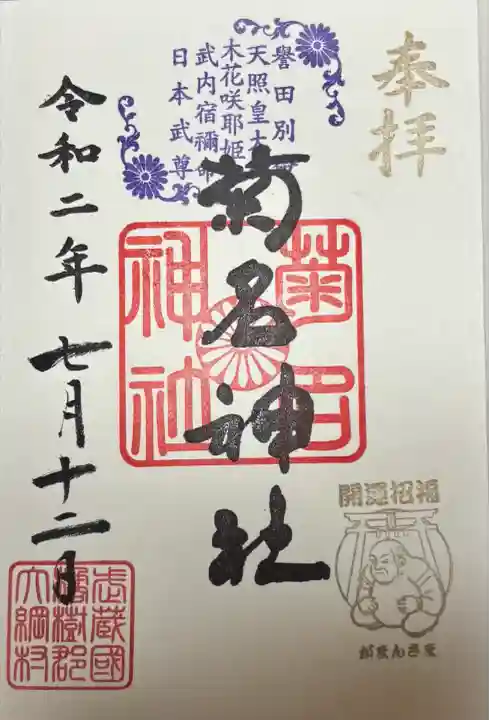 奉拝
開運招福
がまんさま
誉田別
天照皇大
木花咲耶姫
武内宿禰命
日本武尊
菊名神社
菊名
神社
令和二年七月十二日
武蔵國
橘樹郡
大綱村